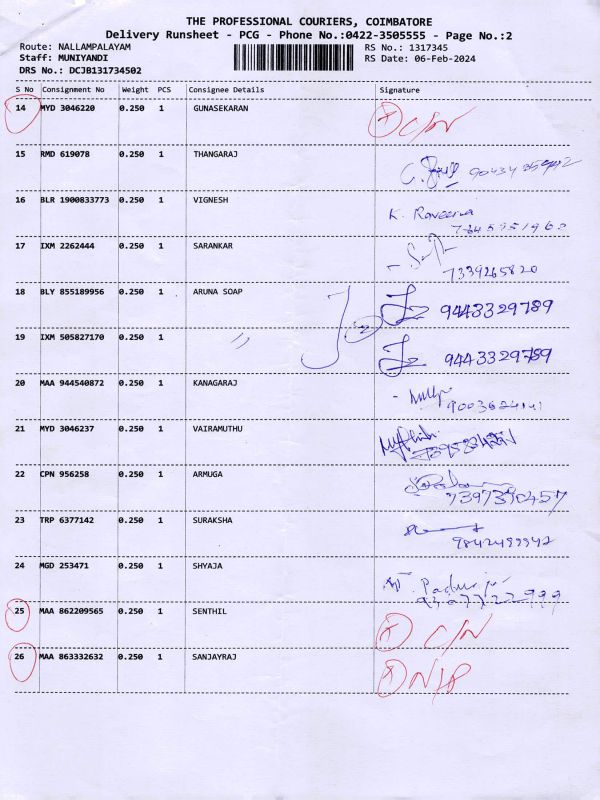 THE PROFESSIONAL COURIERS, COIMBATORE
Delivery Runsheet - PCG - Phone No.:0422-3505555 - Page No.:2
Route: NALLAMPALAYAM
RS No.: 1317345
Staff: MUNIYANDI
RS Date: 06-Feb-2024
DRS No.: DCJB131734502
S No Consignment No Weight PCS Consignee Details Signature
14 MYD 3046220 0.250 1 GUNASEKARAN C/N
15 RMD 619078 0.250 1 THANGARAJ
16 BLR 1900833773 0.250 1 VIGNESH K. Raveena
17 IXM 2262444 0.250 1 SARANKAR
7339265820
18 BLY 855189956 0.250 1 ARUNA SOAP 9443329789
2
19 IXM 505827170 0.250 1 " 9443329789
20 MAA 944540872 0.250 1 KANAGARAJ
21 MYD 3046237 0.250 1 VAIRAMUTHU
22 CPN 956258 0.250 1 ARMUGA
7397390457
23 TRP 6377142 0.250 1 SURAKSHA
9842499942
24 MGD 253471 0.250 1 SHYAJA
25 MAA 862209565 0.250 1 SENTHIL C/N
26 MAA 863332632 0.250 1 SANJAYRAJ N/P